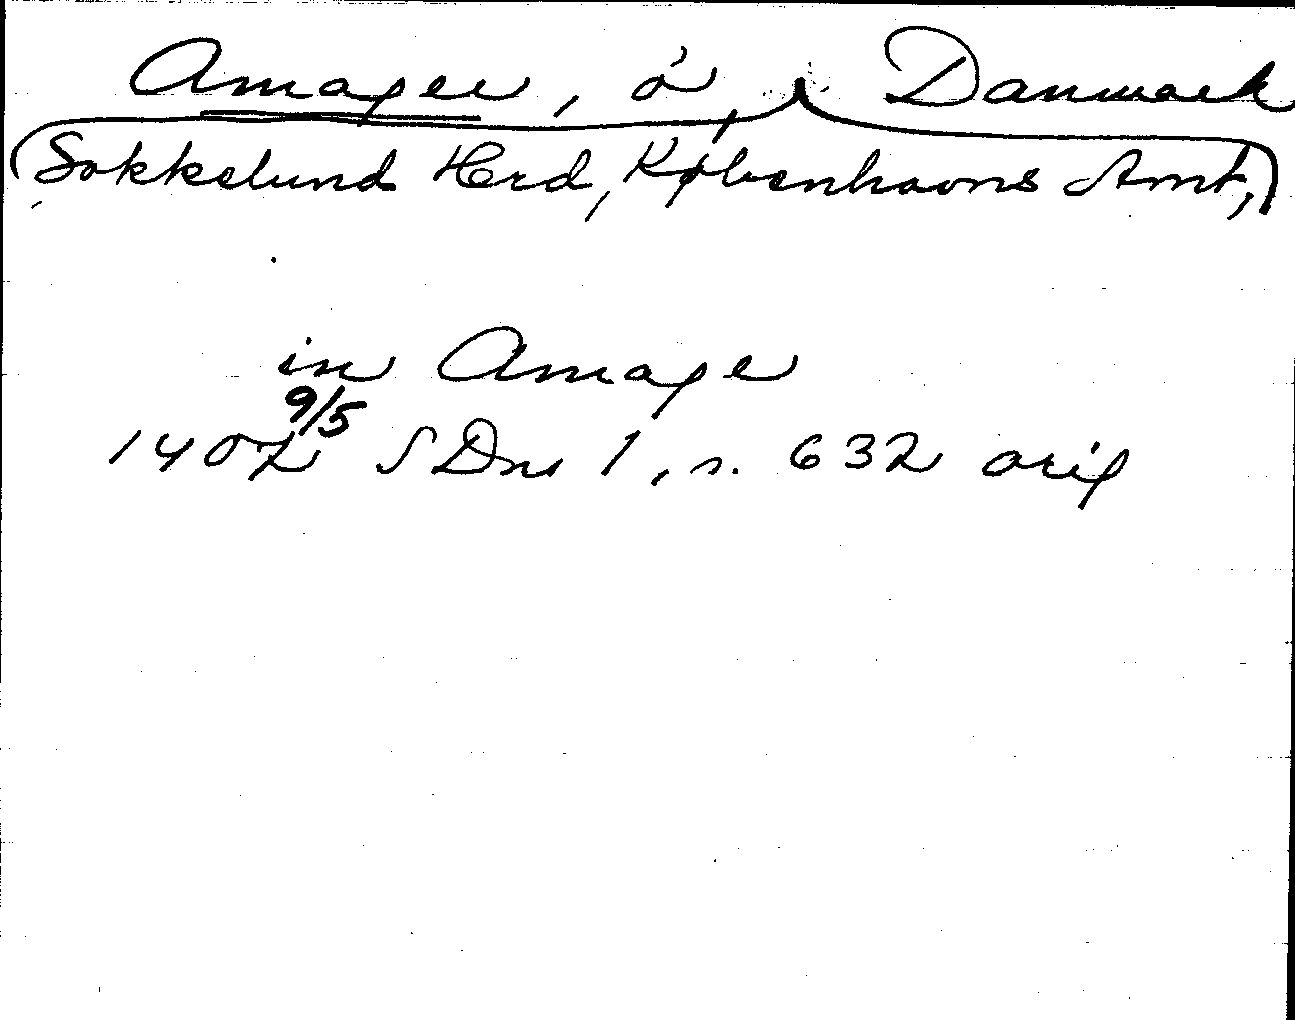 Amager, ö, Danmark
(Sokkelund Hrd, Københavns Amt,)
in Amage
1402 9/5 SDns 1, s. 632 orig